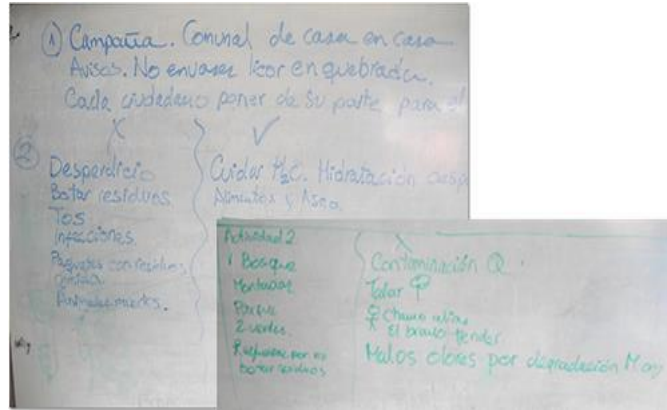 ① Campaña. Comunal de casa en casa
Avisos. No envases licor en quebrada.
Cada ciudadano poner de su parte para el
X ✓
② Desperdicio
Botar residuos
Tos
Infecciones.
Paquetes con residuos
comida
Animales muertos.
Cuidar H₂O. Hidratación
Alimentos y Aseo
Actividad 2
1 Bosque
Montañas
Parque
Z verdes.
botar residuos
Contaminación Q.
Talar
El bravo Tender.
Malos olores por degradación M. org